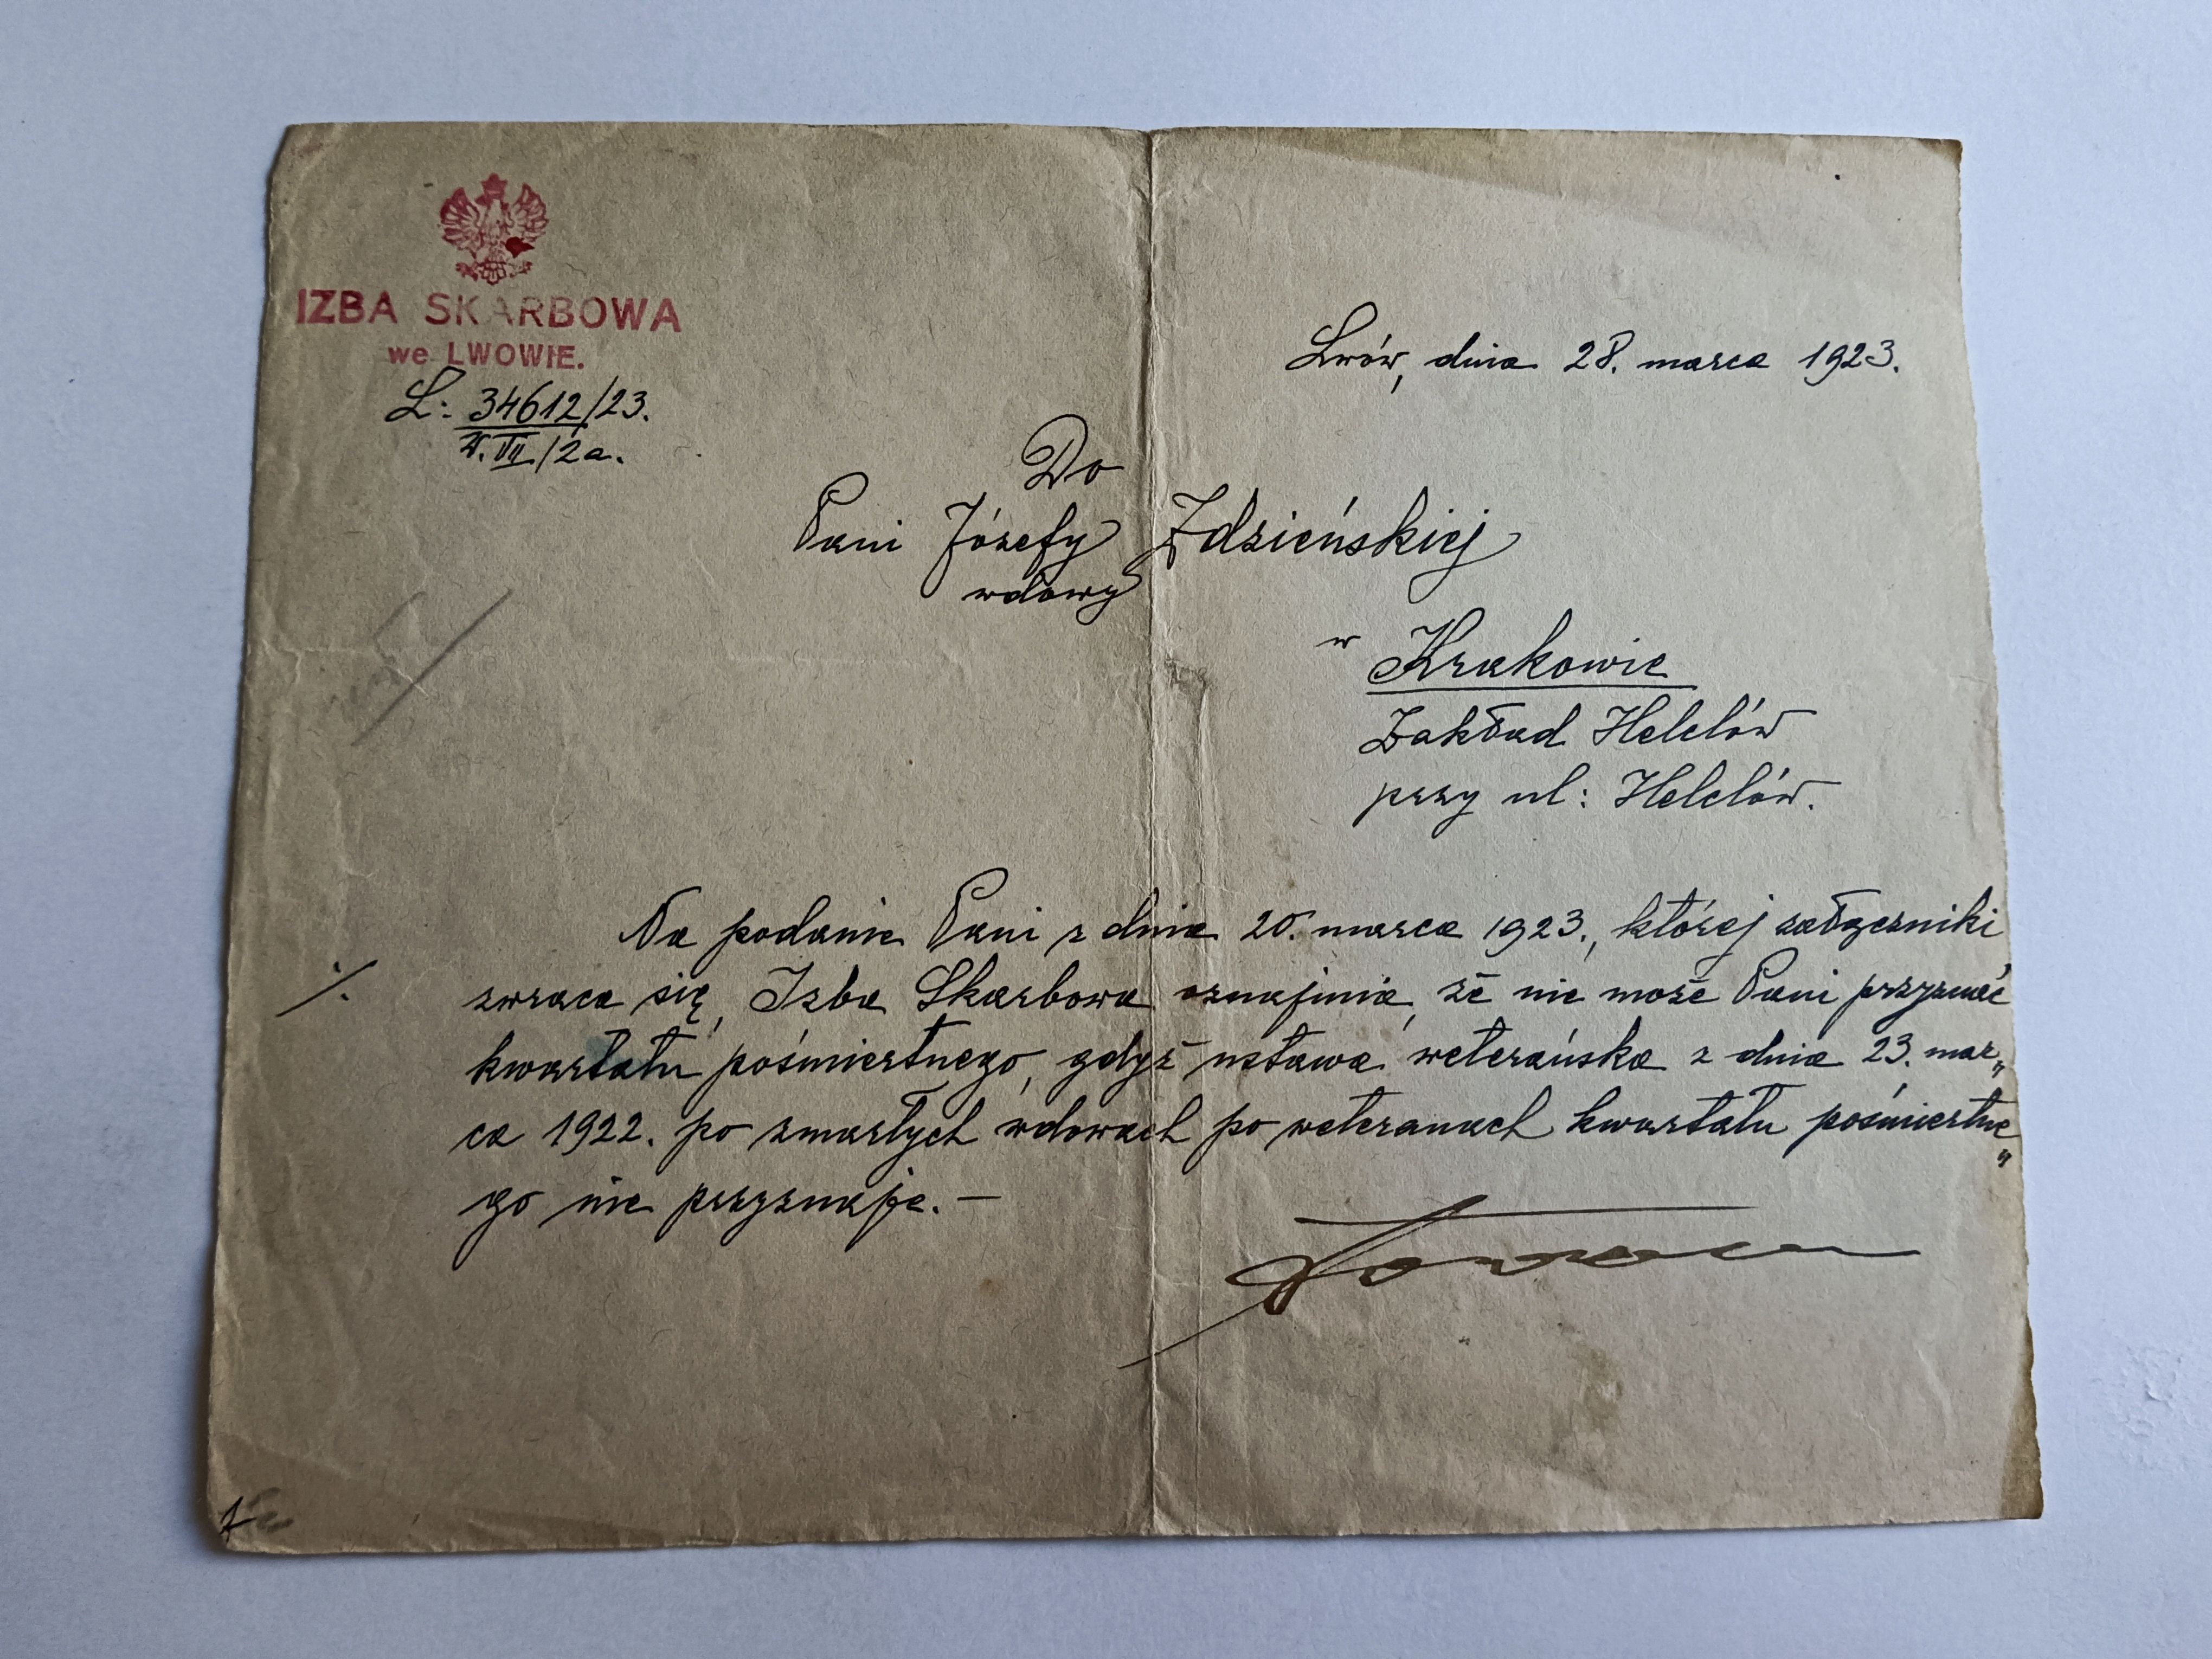 IZBA SKARBOWA
we LWOWIE.
L: 34612/23.
VII/2a.
Lwów, dnia 28. marca 1923.
Do
Pani Józefy Zdzieńskiej
wdowy
w Krakowie
Zakład Helclów
przy ul: Helclów.
Na podanie Pani z dnia 20. marca 1923., której załączniki
./. zwraca się, Izba Skarbowa oznajmia, że nie może Pani przyznać
kwartału pośmiertnego, gdyż ustawa weterańska z dnia 23. mar„
ca 1922. po zmarłych wdowach po weteranach kwartału pośmiertne„
go nie przyznaje. —